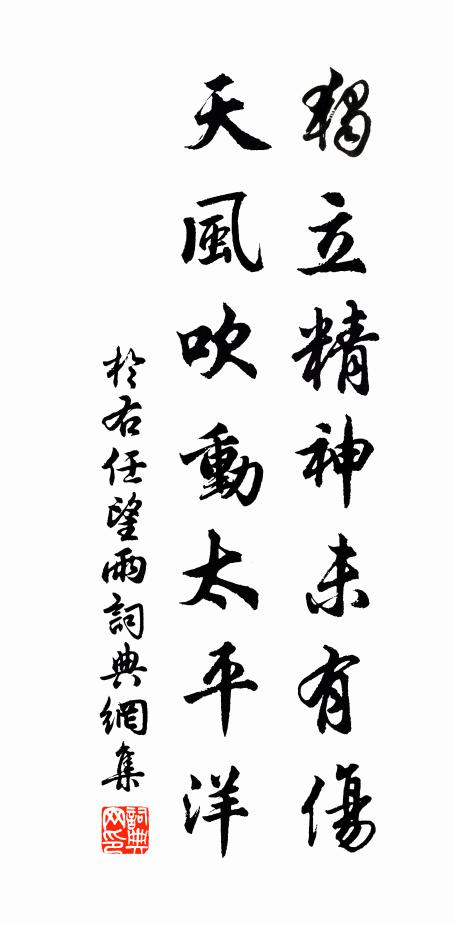 獨立精神未有傷
天風吹動太平洋
於右任望雨詞典網集
詞典網印